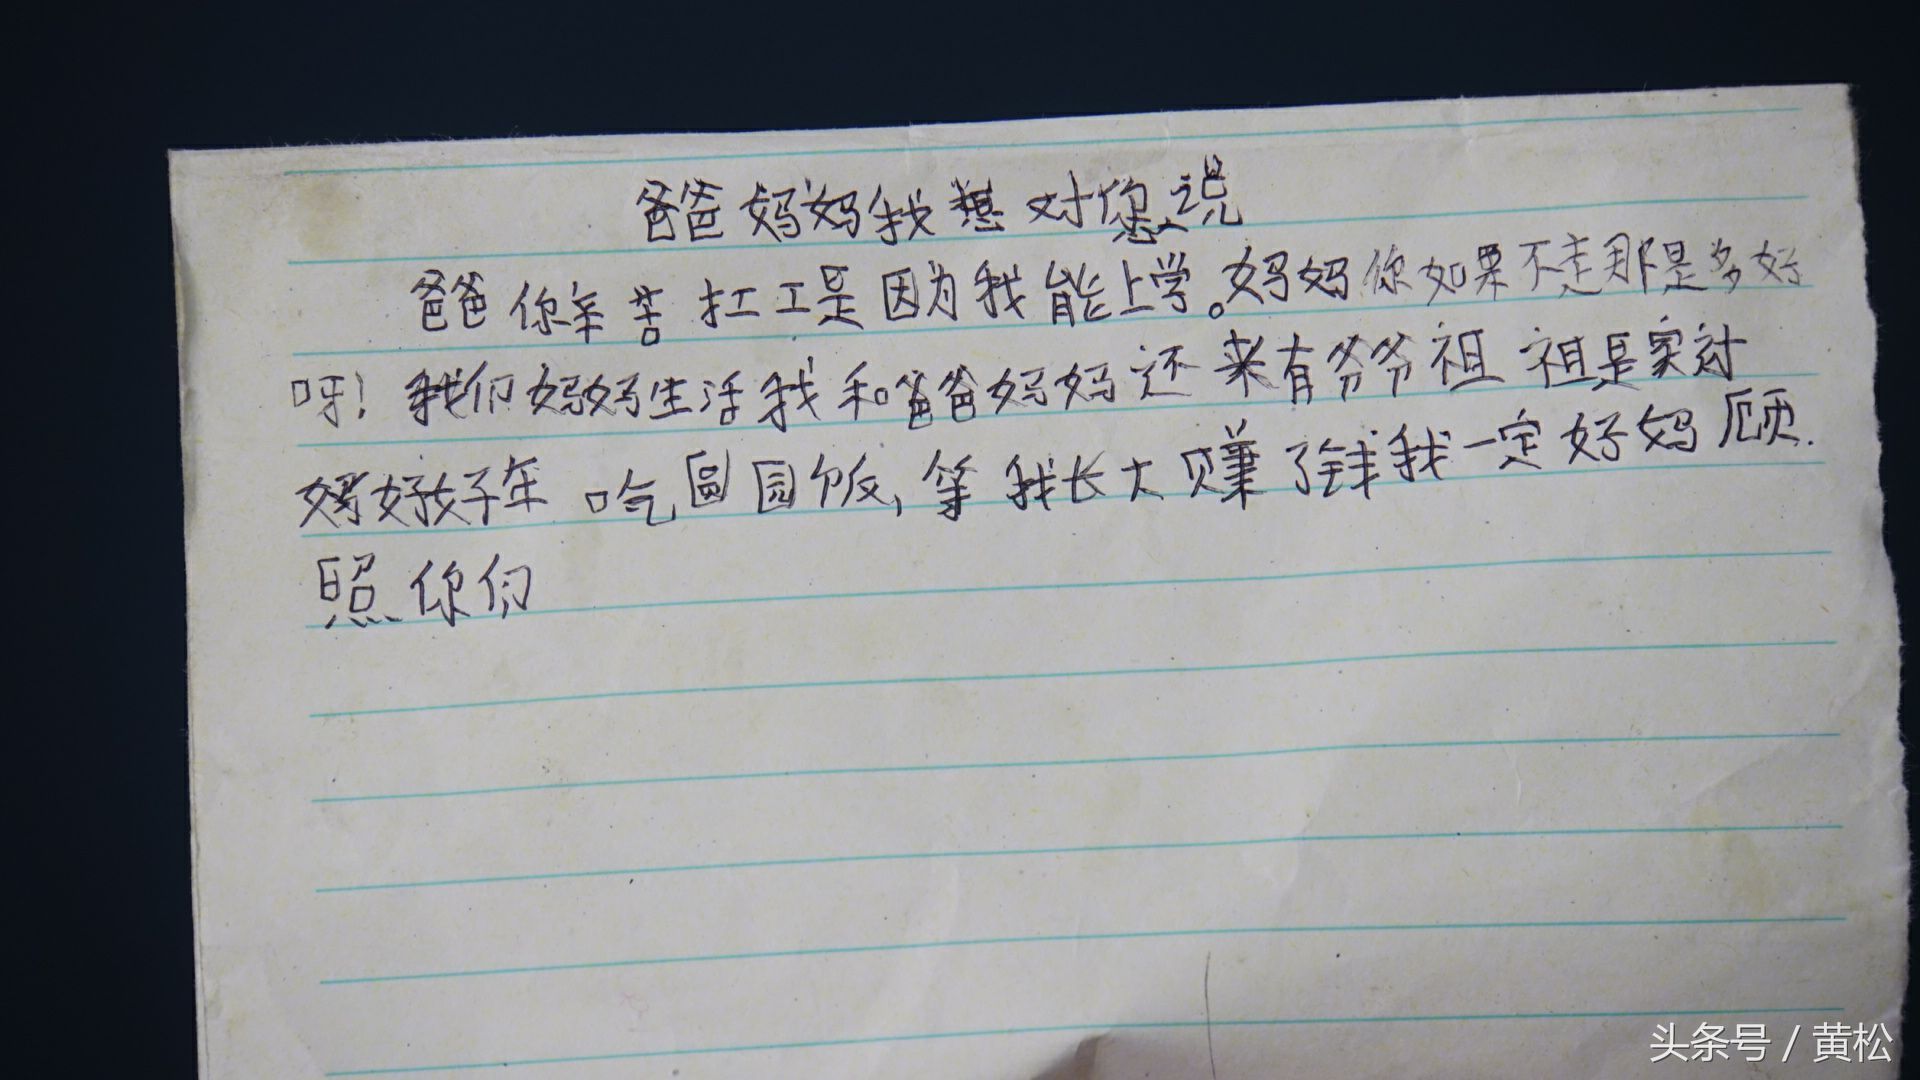 爸爸妈妈我想对您说
爸爸你辛苦扛工是因为我能上学。妈妈你如果不走那是多好
呀！我们妈妈生活我和爸爸妈妈还来有爷爷祖祖是家对
好好年吃团园饭，等我长大赚了钱我一定好妈顾
照你们
头条号 / 黄松